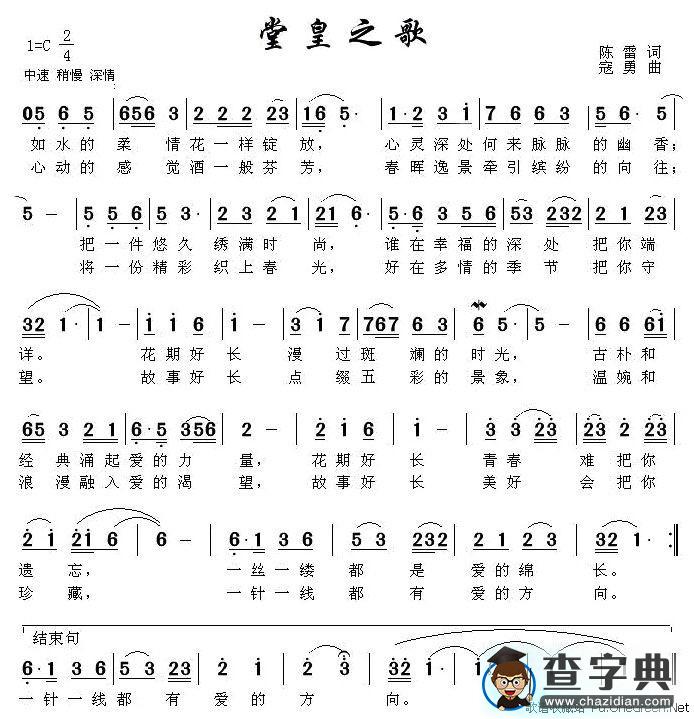 堂皇之歌
1=C 2/4
中速 稍慢 深情
陈雷 词
寇勇 曲
05 6 5 | (656 3 | 2 2 2 23 | 16 5· | 1·2 3 i | 7 6 6 6 | 5 3· 6· | 5
如水的 柔 情花一样绽 放, 心灵深处何来脉脉 的幽香;
心动的 感 觉酒一般芬 芳, 春晖逸景牵引缤纷 的向往;
5 - | 5 5 6 | 5· | 2 3 2 1 | 21 6· | 5·6 3 5 6 | 53 232 | 2 1 23
把一件悠久 绣满时 尚, 谁在幸福的深 处 把你端
将一份精彩 织上春 光, 好在多情的季 节 把你守
32 1· | 1 - | i i 6 | 5 - | 3 i 7 | 767 6 3 | 6 5· | 5 - | 6 6 6i
详。 花期好 长 漫 过斑 斓的 时光, 古朴和
望。 故事好 长 点 缀五 彩的 景象, 温婉和
65 3 2 1 | 1 2 2 | 6·5 356 | 2 - | 2 i 6 | 6 - | 3 3 23 | 23 23
经典涌起 爱的力 量, 花期好 长 青春 难把你
浪漫融入 爱的渴 望, 故事好 长 美好 会把你
2 i | 2i 6 | 6 - | 6·1 3 6 | 5 3 232 | 2 1 2 3 | 1 - :||
遗 忘, 一丝一缕 都 是 爱的绵 长。
珍 藏, 一针一线 都 有 爱的方 向。
结束句
6·1 3 6 | 5 3 232 | 2 i | 2 3 | 32i
一针一线都 有 爱 的 方 向。
查字典
www.chazidian.com